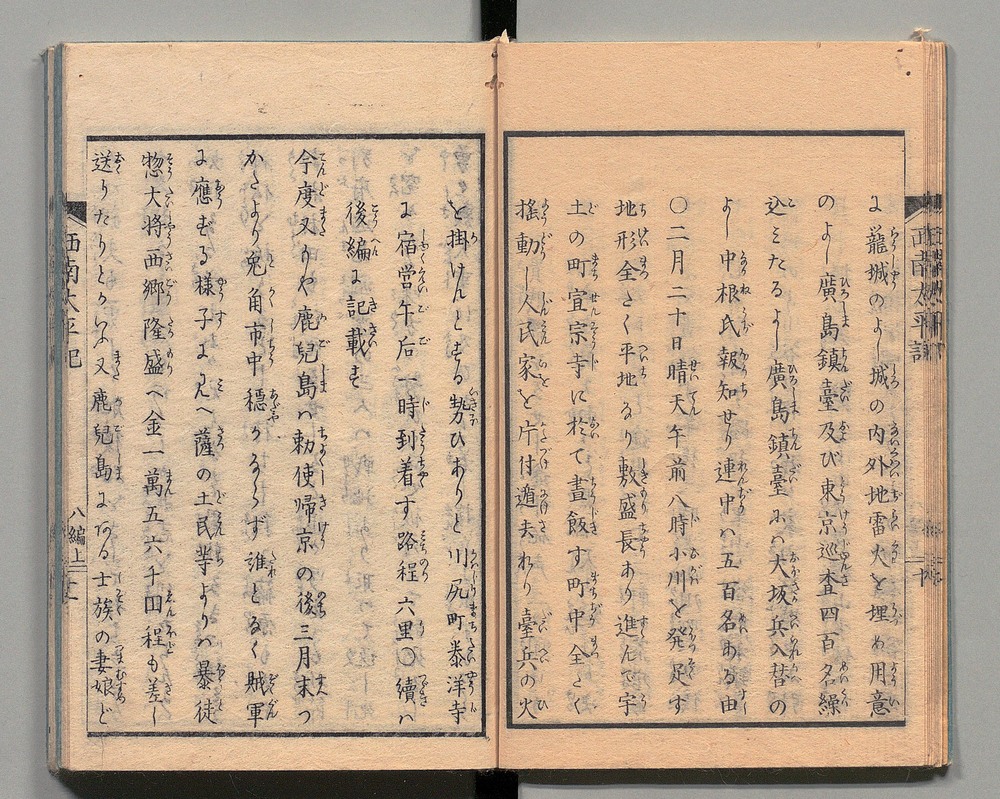 に龍城のよし城の内外地雷火を埋め用意
のよし廣島鎮臺及び東京巡査四百名繰
込ミたるよし廣島鎮臺ハ大坂兵入替の
よし中根氏報知せり連中ハ五百名ある由
〇二月二十日晴天午前八時小川を発足す
地形全さく平地なり敷盛長あり進んで宇
土の町宜宗寺に於て晝飯す町中全さく
揺動し人民家を片付遁去れり臺兵の火
を掛けんとする勢ひありと川尻町泰洋寺
に宿営午后一時到着す路程六里〇續ハ
後編に記載す
今度又りや鹿兒島ハ勅使帰京の後三月末つ
かたより兎角市中穏かならず誰となく賊軍
に應ずる様子に見へ薩の土民等よりハ暴徒
惣大将西郷隆盛へ金一萬五六千円程も差し
送りたりとかいふ又鹿兒島に有る士族の妻娘ど
西南太平記
八編上